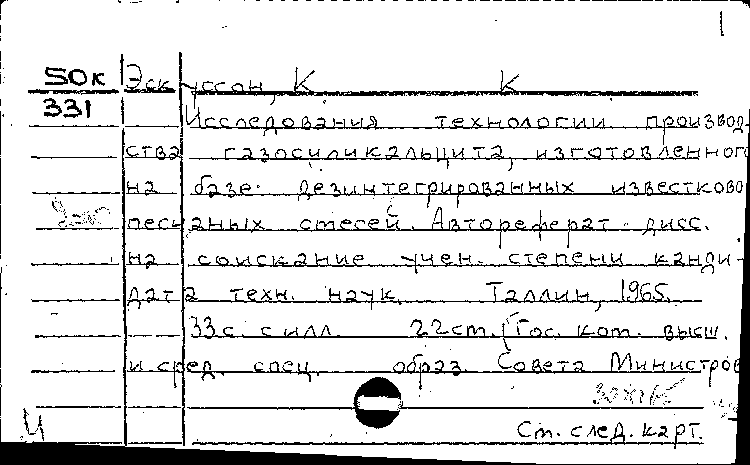 50к Эскуссон, К К
331 Исследования технологии производ-
ства газосиликальцита, изготовленного
на базе дезинтегрированных известково
песчаных смесей. Автореферат дисс.
на соискание учен. степени канди-
дата техн. наук. Таллин, 1965.
33с. с илл. 22см. (Гос. ком. высш.
и сред. спец. образ. Совета Министров
Ч
См. след. карт.